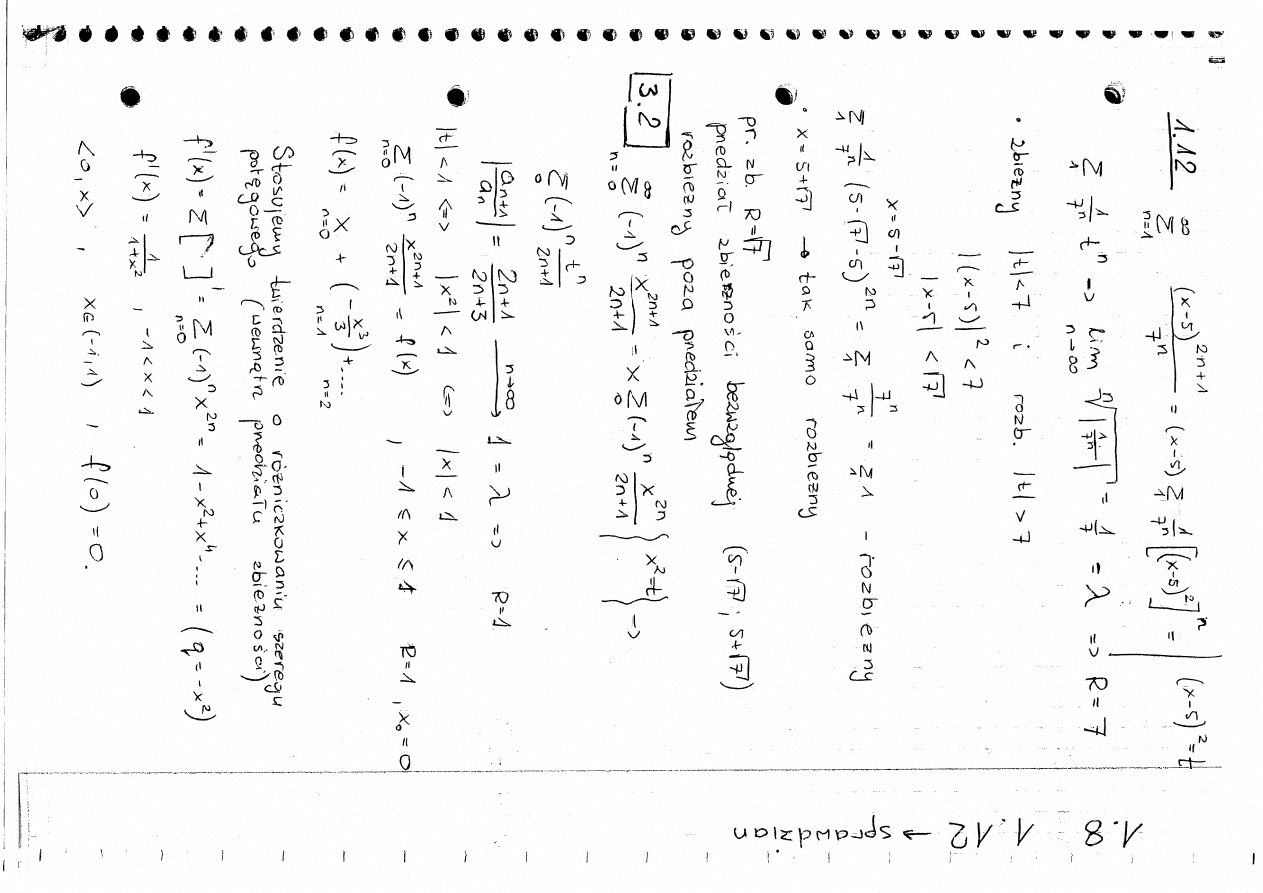 1.12 ∞Σn=1 (x-5)^{2n+1}/7^n = (x-5) Σ1 1/7^n [(x-5)^2]^n = | (x-5)^2 = t
Σ1 1/7^n t^n → lim n→∞ ⁿ√|1/7^n| = 1/7 = λ => R = 7
• zbieżny |t|<7 i rozb. |t|>7
|(x-5)|^2 < 7
|x-5| < √7
x = 5-√7
Σ1 1/7^n (5-√7-5)^{2n} = Σ1 7^n/7^n = Σ1 1 - rozbieżny
• x = 5+√7 → tak samo rozbieżny
pr. zb. R=√7
przedział zbieżności bezwzględnej (5-√7 ; 5+√7)
rozbieżny poza przedziałem
3.2 ∞Σn=0 (-1)^n x^{2n+1}/2n+1 = x Σ0 (-1)^n x^{2n}/2n+1 } x^2=t } →
Σ0 (-1)^n t^n/2n+1
|a_{n+1}/a_n| = 2n+1/2n+3 n→∞ → 1 = λ => R=1
|t|<1 <=> |x^2|<1 <=> |x|<1
Σn=0 (-1)^n x^{2n+1}/2n+1 = f(x) , -1 ≤ x ≤ 1 R=1, x₀=0
f(x) = x + (-x^3/3) + ....
n=0 n=1 n=2
Stosujemy twierdzenie o różniczkowaniu szeregu
potęgowego (wewnątrz przedziału zbieżności)
f'(x) = Σn=0 [ ]' = Σ (-1)^n x^{2n} = 1-x^2+x^4-... = (q=-x^2)
f'(x) = 1/1+x^2 , -1<x<1
<0,x> , x∈(-1,1) , f(0)=0.
1.8 1.12 → sprawdzian